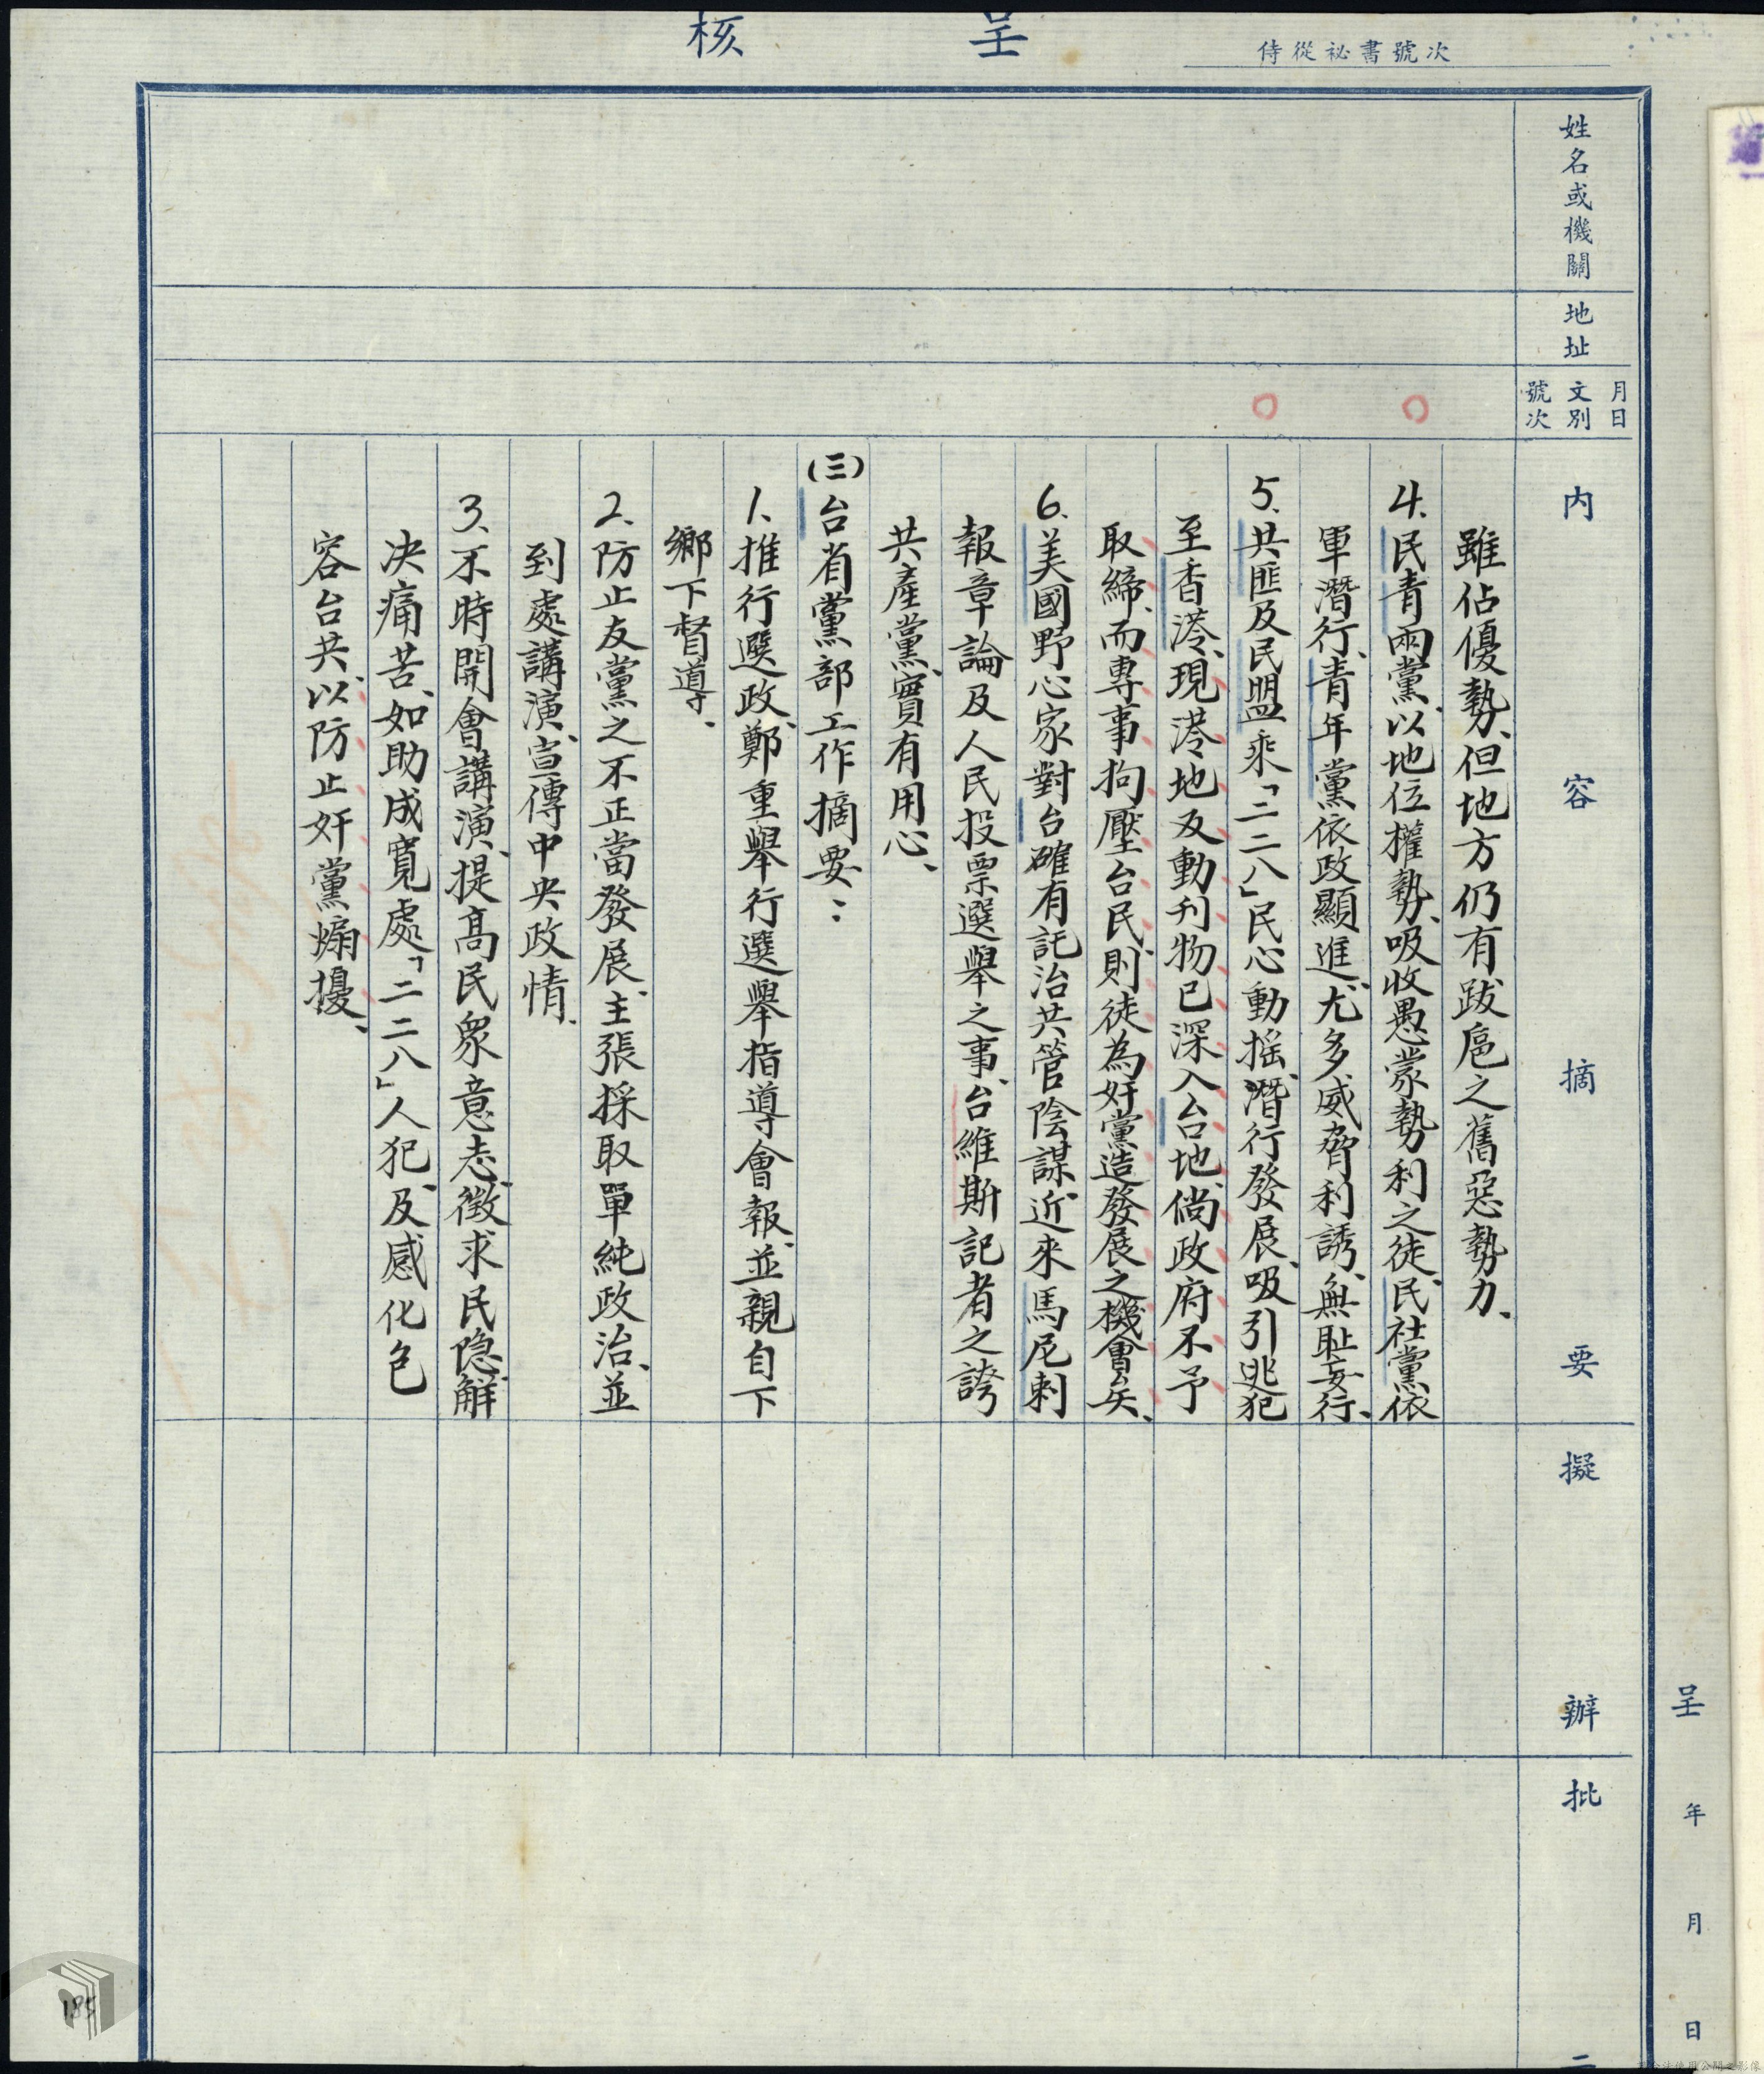 呈核
侍從祕書號次
呈　年　月　日
姓名或機關
地址
月日
文別
號次
內容摘要
擬辦
批
雖佔優勢、但地方仍有跋扈之舊惡勢力、
4.民青兩黨、以地位權勢、吸收愚蒙勢利之徒、民社黨依
軍潛行、青年黨依政顯進、尤多威脅利誘、無恥妄行、
5.共匪及民盟乘「二二八」民心動搖、潛行發展、吸引逃犯
至香港、現港地反動刊物已深入台地、倘政府不予
取締、而專事拘壓台民、則徒為奸黨造發展之機會矣、
6.美國野心家對台確有託治共管陰謀、近來馬尼剌
報章論及人民投票選舉之事、台維斯記者之誇
共產黨、實有用心、
(三)台省黨部工作摘要：
1.推行選政、鄭重舉行選舉指導會報、並親自下
鄉下督導、
2.防止友黨之不正當發展、主張採取單純政治、並
到處講演、宣傳中央政情、
3.不時開會講演、提高民眾意志、徵求民隱、解
決痛苦、如助成寬處「二二八」人犯、及感化包
容台共、以防止奸黨煽擾、
185